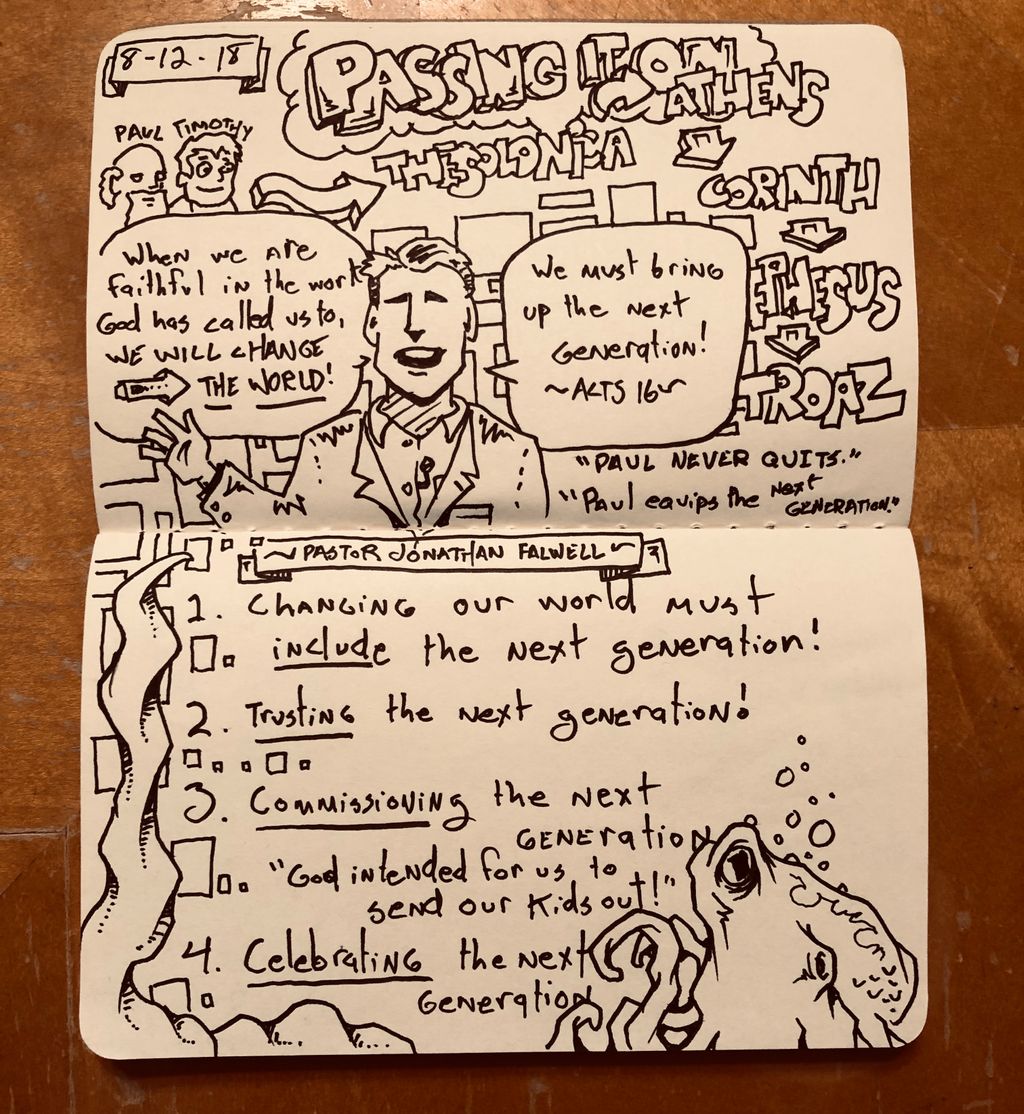 8-12-18
PASSING IT ON
PAUL TIMOTHY
THESSOLONICA
ATHENS
CORINTH
EPHESUS
TROAZ
When we are
faithful in the work
God has called us to,
WE WILL CHANGE
THE WORLD!
We must bring
up the next
Generation!
~ACTS 16~
"PAUL NEVER QUITS."
"Paul equips the NEXT
GENERATION."
~PASTOR JONATHAN FALWELL~
1. CHANGING our world must
include the next generation!
2. Trusting the next generation!
3. Commissioning the next
GENERATION
"God intended for us to
send our kids out!"
4. Celebrating the next
Generation